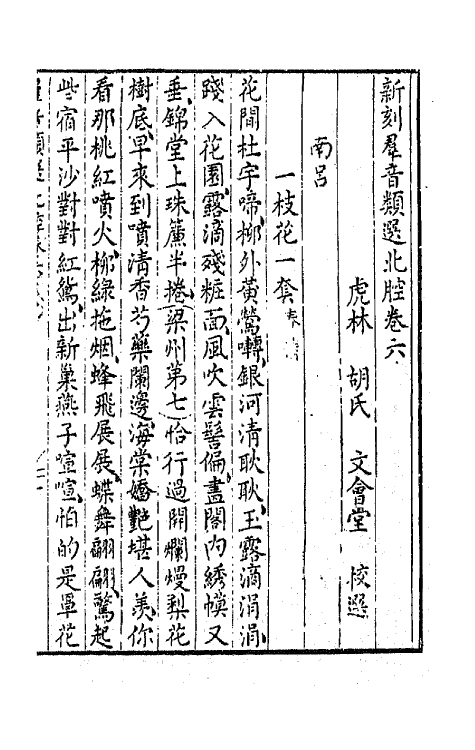 新刻羣音類選北腔卷六
虎林 胡氏 文會堂 校選
南呂
一枝花一套 春
花間杜宇啼柳外黃鶯囀銀河清耿耿玉露滴涓涓
踐入花園露滴殘粧面風吹雲髻偏畫閣內綉幙又
垂錦堂上珠簾半捲（梁州第七）恰行過開爛熳梨花
樹底早來到噴清香芍藥闌邊海棠嬌艷堪人羡你
看那桃紅噴火柳綠拖烟蜂飛展展蝶舞翩翩驚起
些宿平沙對對紅鴛出新巢燕子喧喧怕的是單花